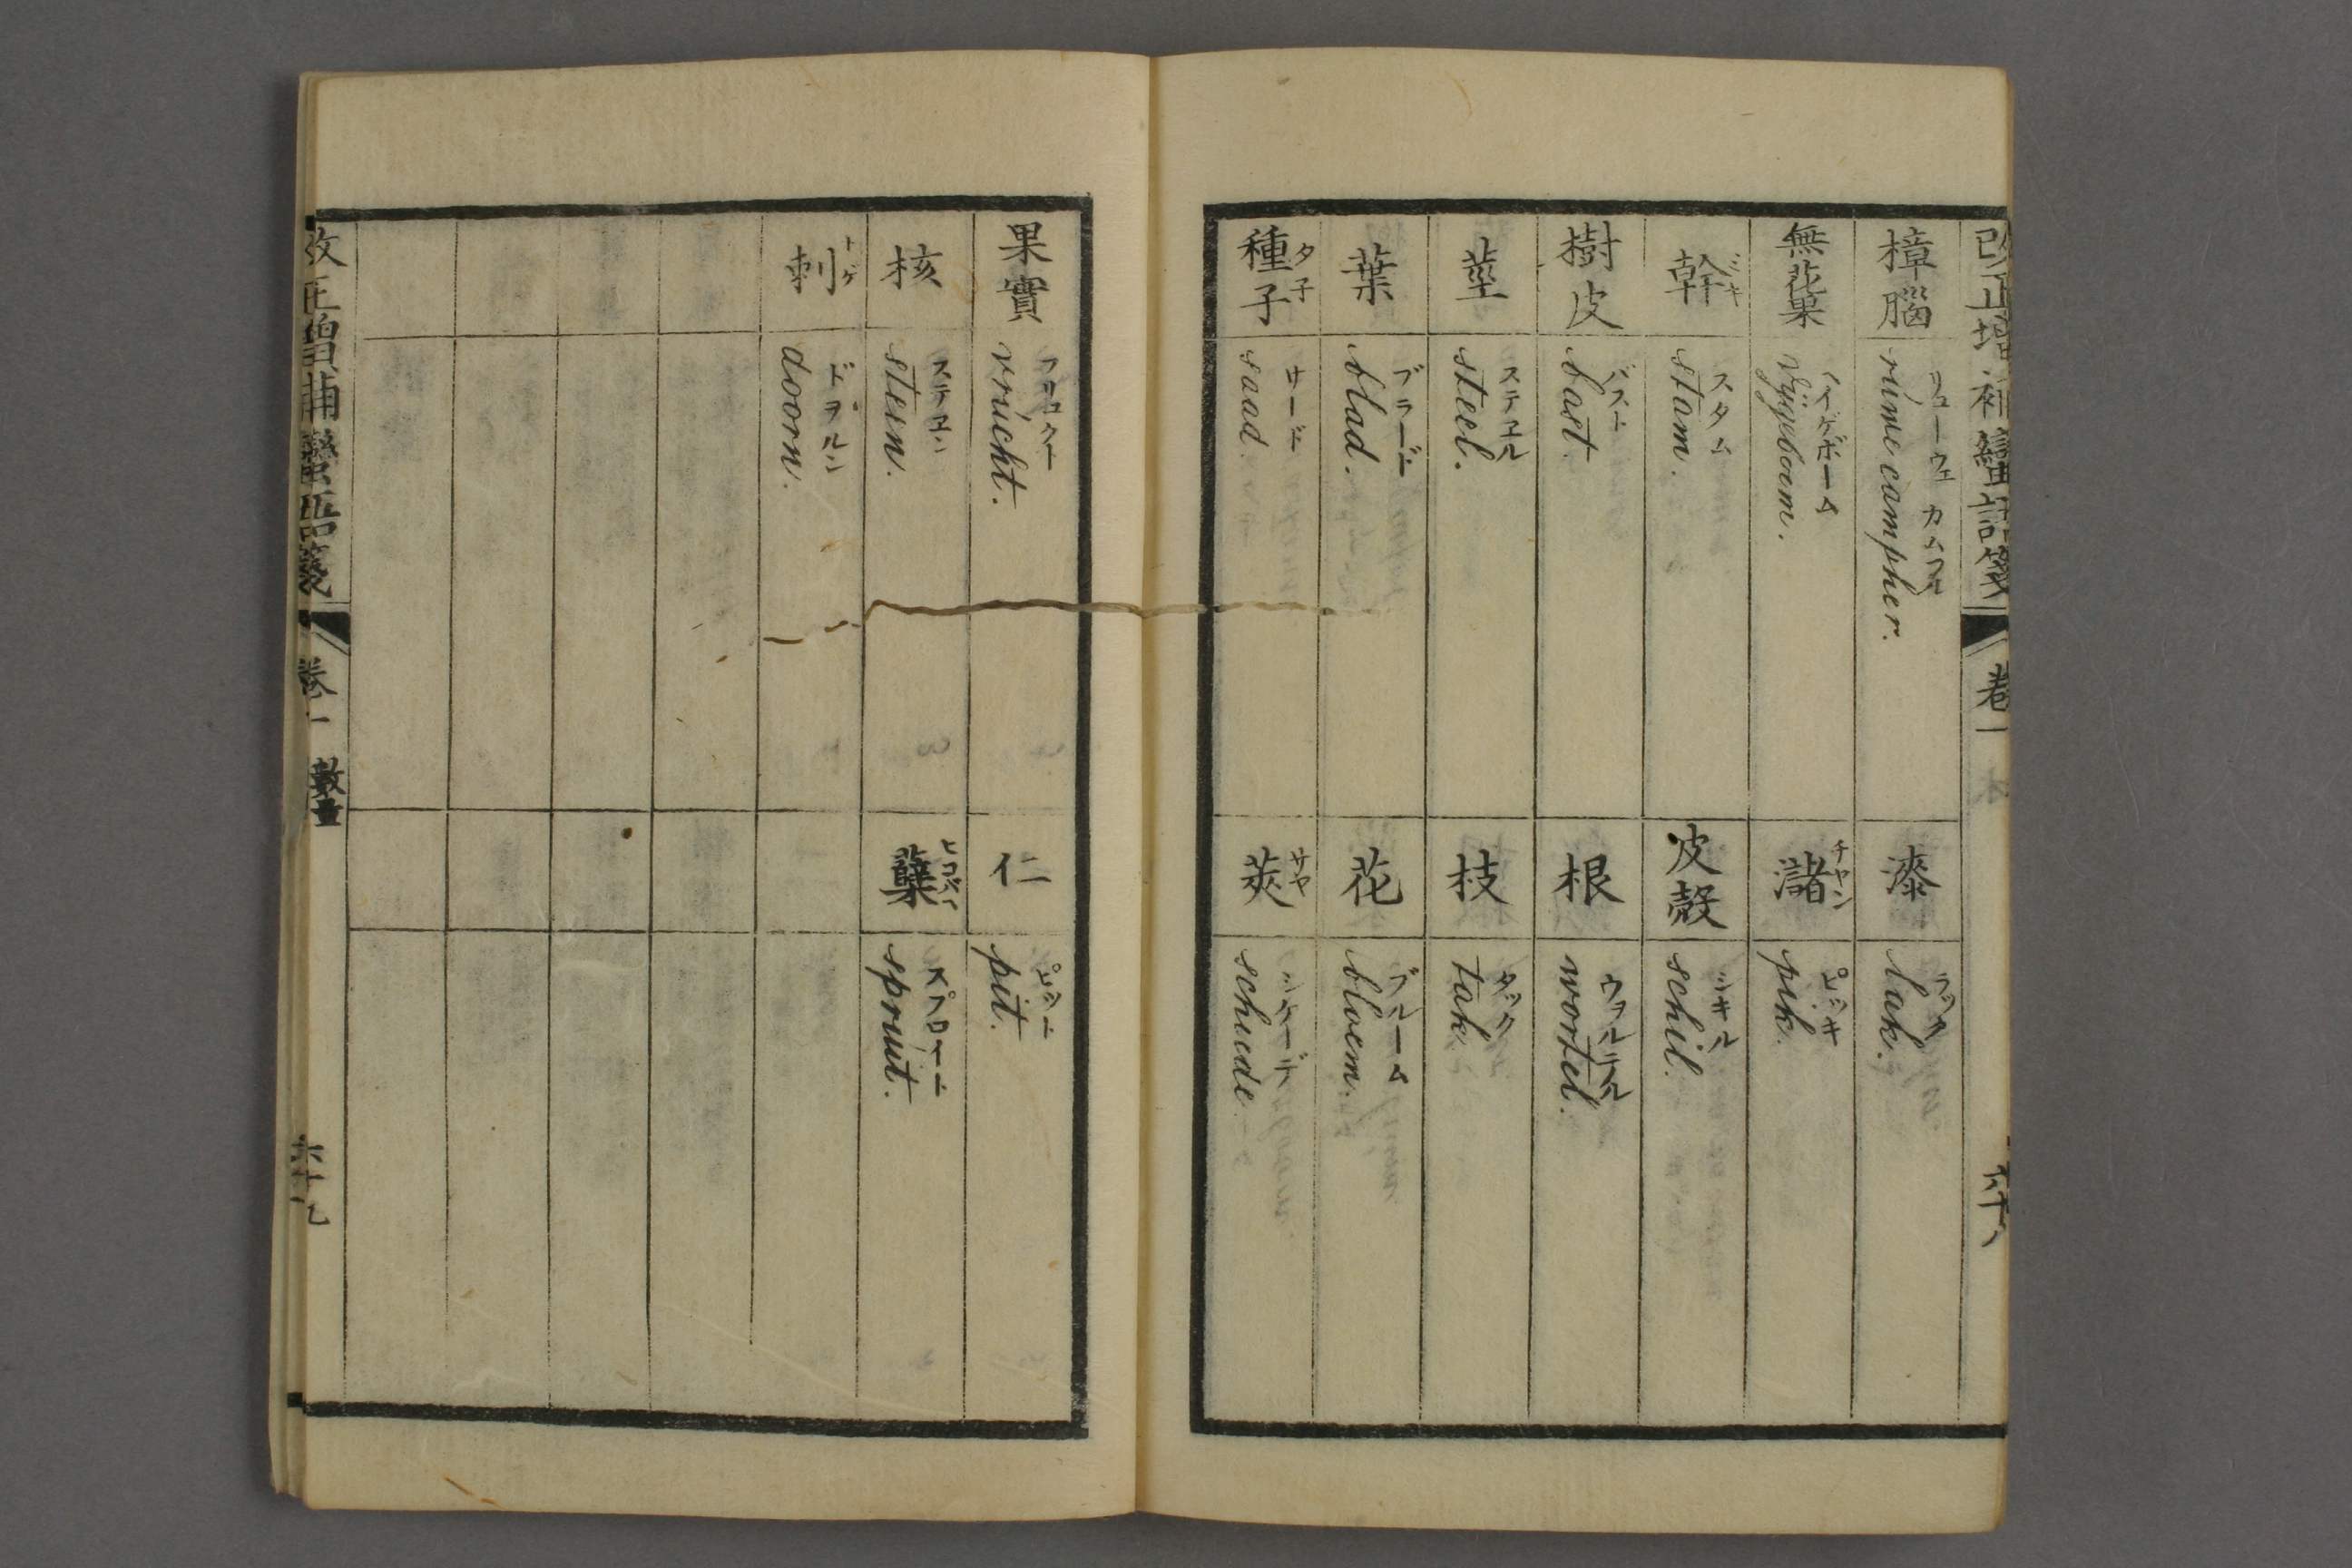 改正増補蠻語箋
卷一
六十八
樟腦
リューウェ カムフル
ruwe campher.
漆
ラック
lak.
無花菓
イイゲボーム
vijgeboom.
瀦 チヤン
ピッキ
pik.
幹 ミキ
スタム
stam.
皮殻
シキル
schil.
樹皮
バスト
bast.
根
ウヲルテル
wortel.
莖
ステエル
steel.
枝
タック
tak.
葉
ブラード
blad.
花
ブルーム
bloem.
種子 タ子
サード
saad.
莢 サヤ
シケーデ
scheede
果實
フリュクト
vrucht.
仁
ピット
pit.
核
ステエン
steen.
蘖 ヒコバヘ
スプロイト
spruit.
刺 トゲ
ドヲルン
doorn.
改正増補蠻語箋
卷一
數量
六十九